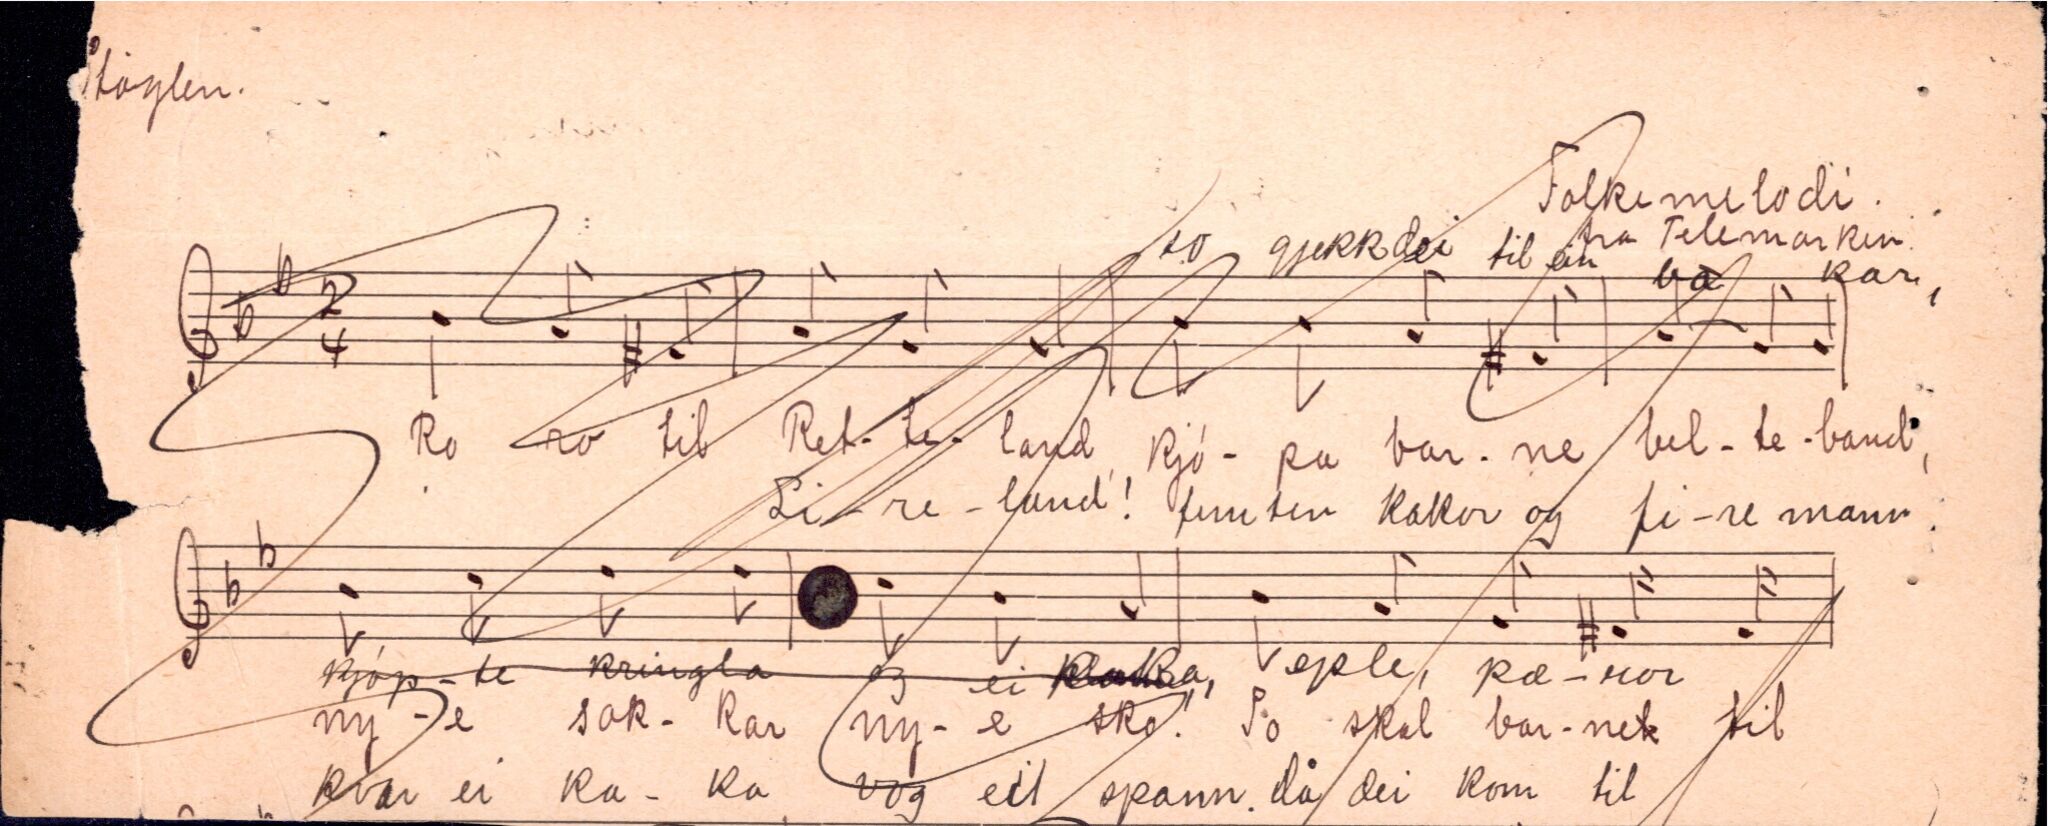 Støylen.
Folkemelodi.
fra Telemarken.
so gjekk dei til ein ba kar,
2
4
Ro ro til Ret-te-land, kjó-pa bar-ne bel-te-band,
Li-re-land! femten kakor og fi-re mann.
kjóp-te kringla og ei kaka, eple,
ny-e sok-kar ny-e sko! So skal bar-net til
kvar ei ka-ka vog eit spann. då dei kom til